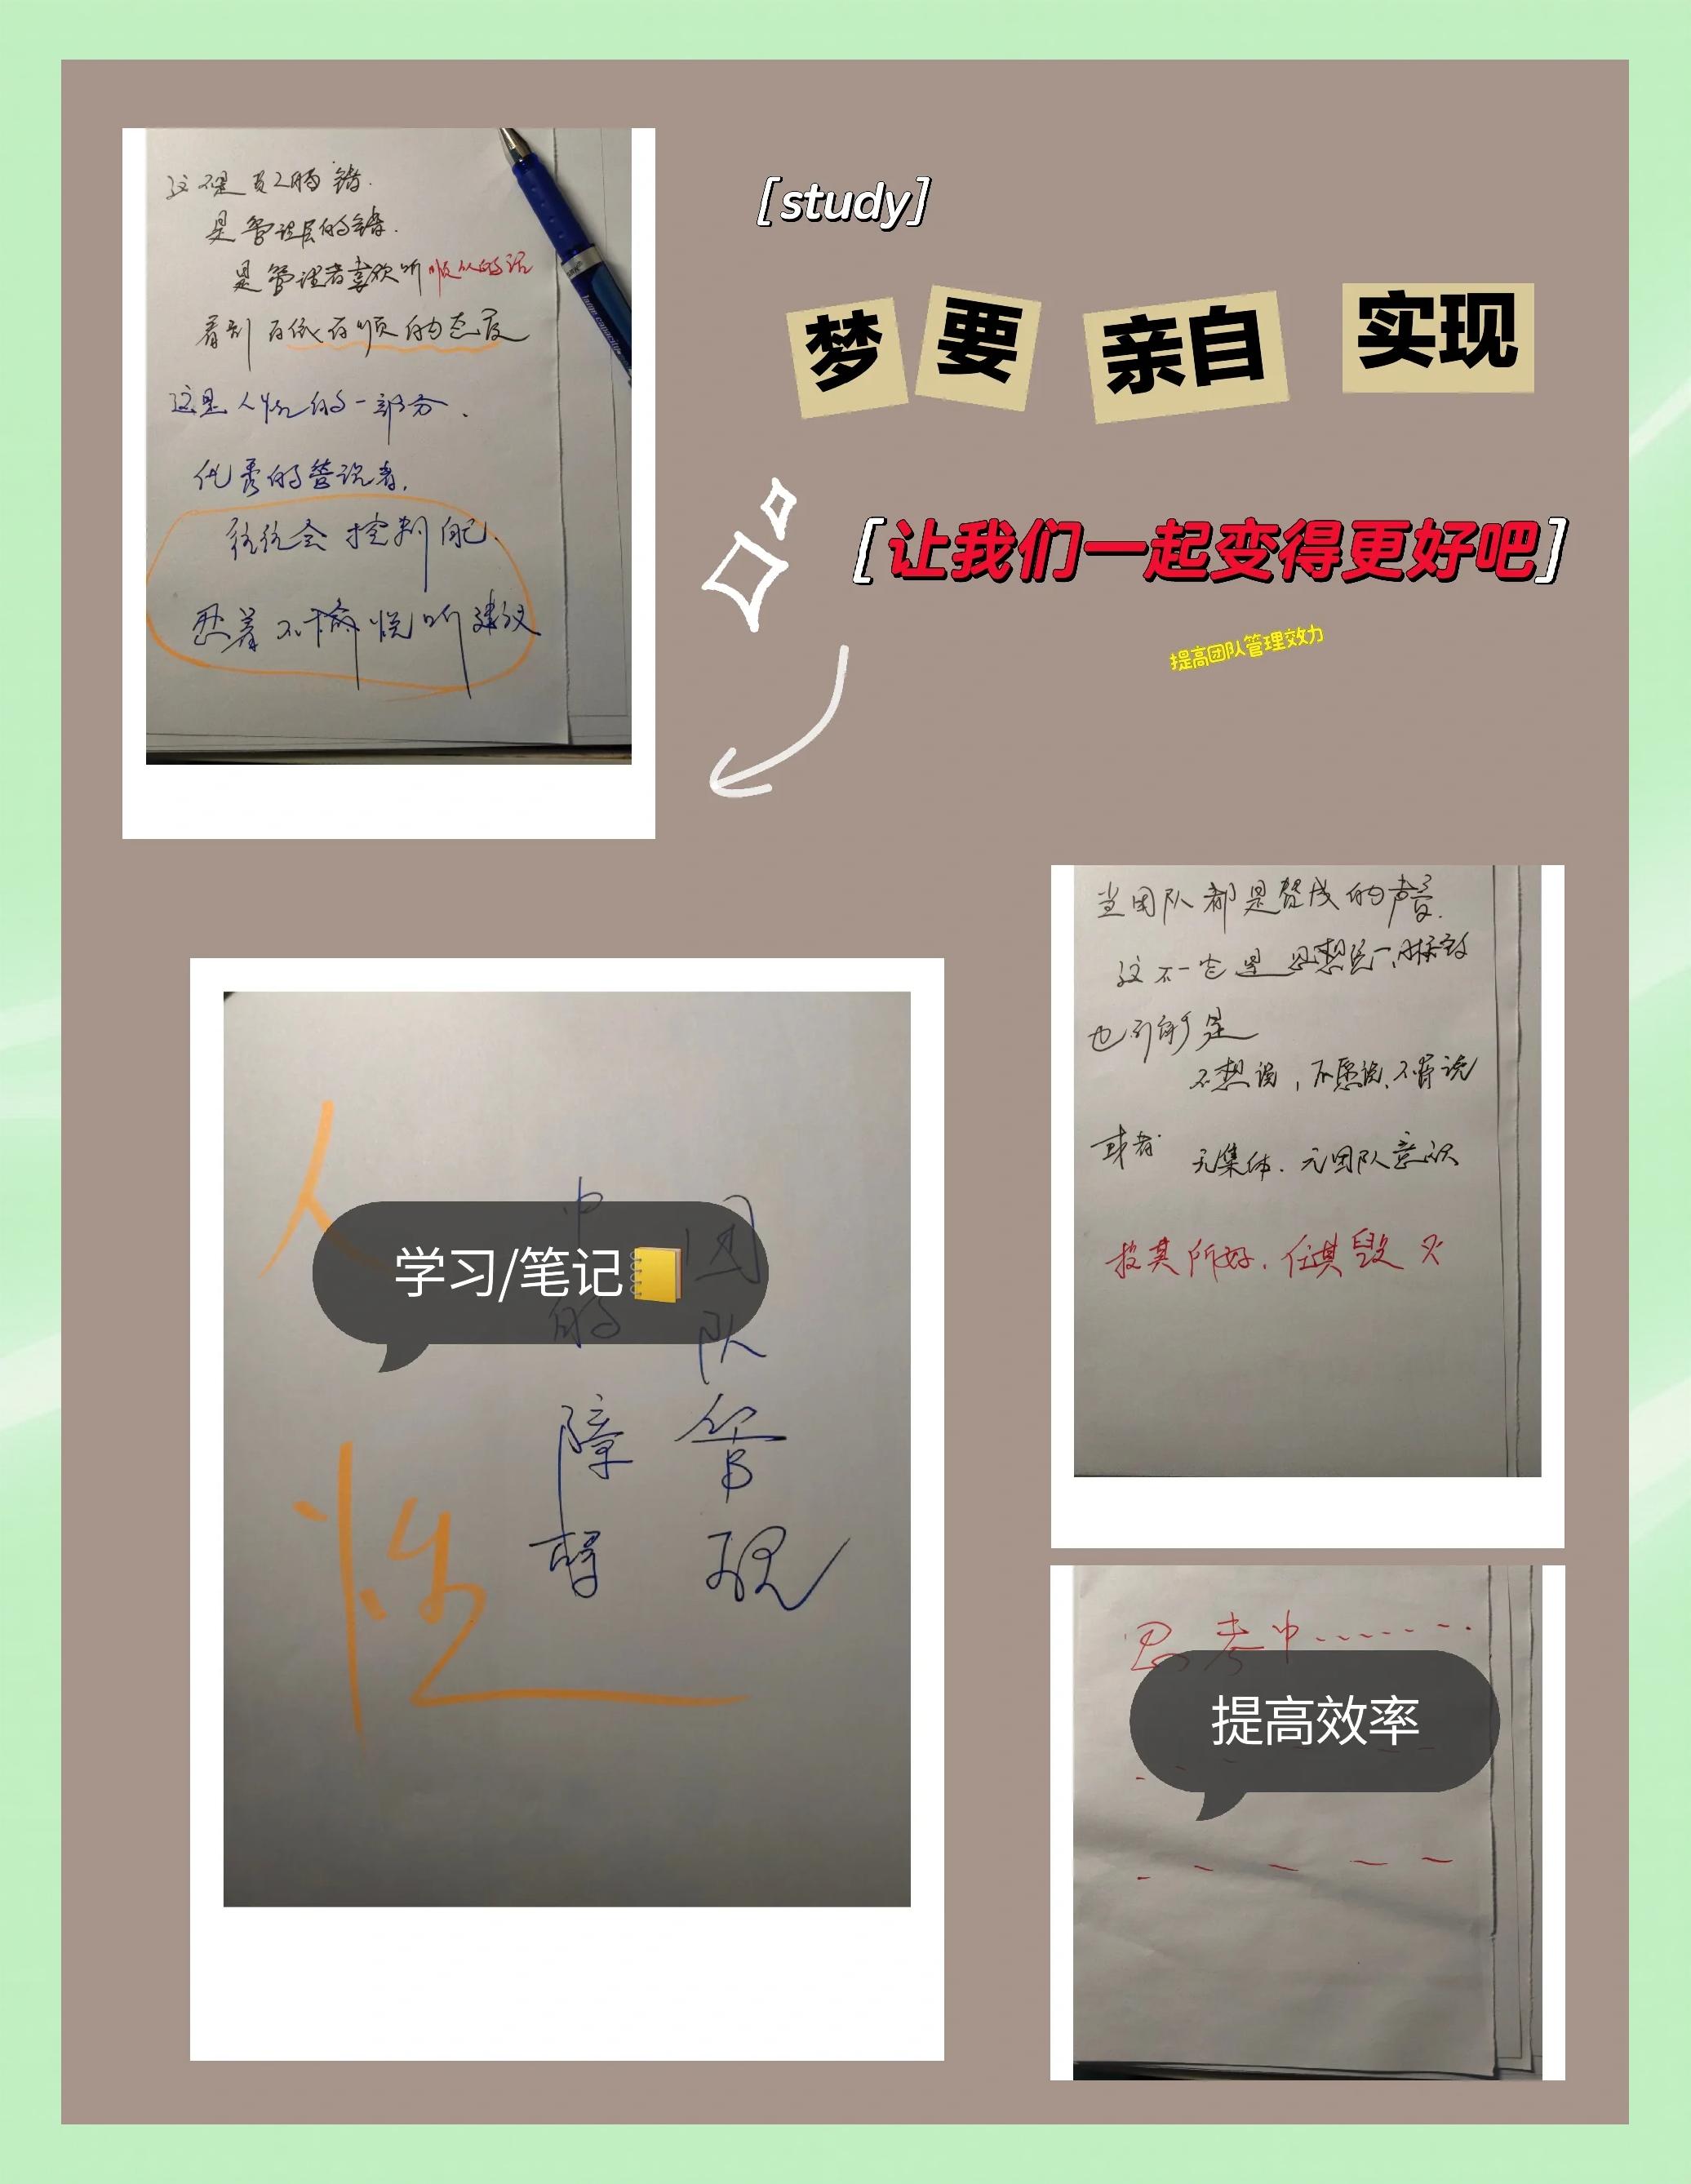 这不是员工的错.
是管理层的错.
是管理者喜欢听顺从的话
看到百依百顺的态度
这是人性的一部分.
优秀的管理者,
往往会控制自己.
忍着不愉悦听建议
[study]
梦 要 亲自 实现
[让我们一起变得更好吧]
提高团队管理效力
当团队都是赞成的声音.
这不一定是思想统一,目标一致
也可能是
不想说,不愿说,不肯说
或者 无集体.无团队意识
投其所好.任其毁灭
人性
团队管理
中的障碍
学习/笔记
思考中.......
提高效率